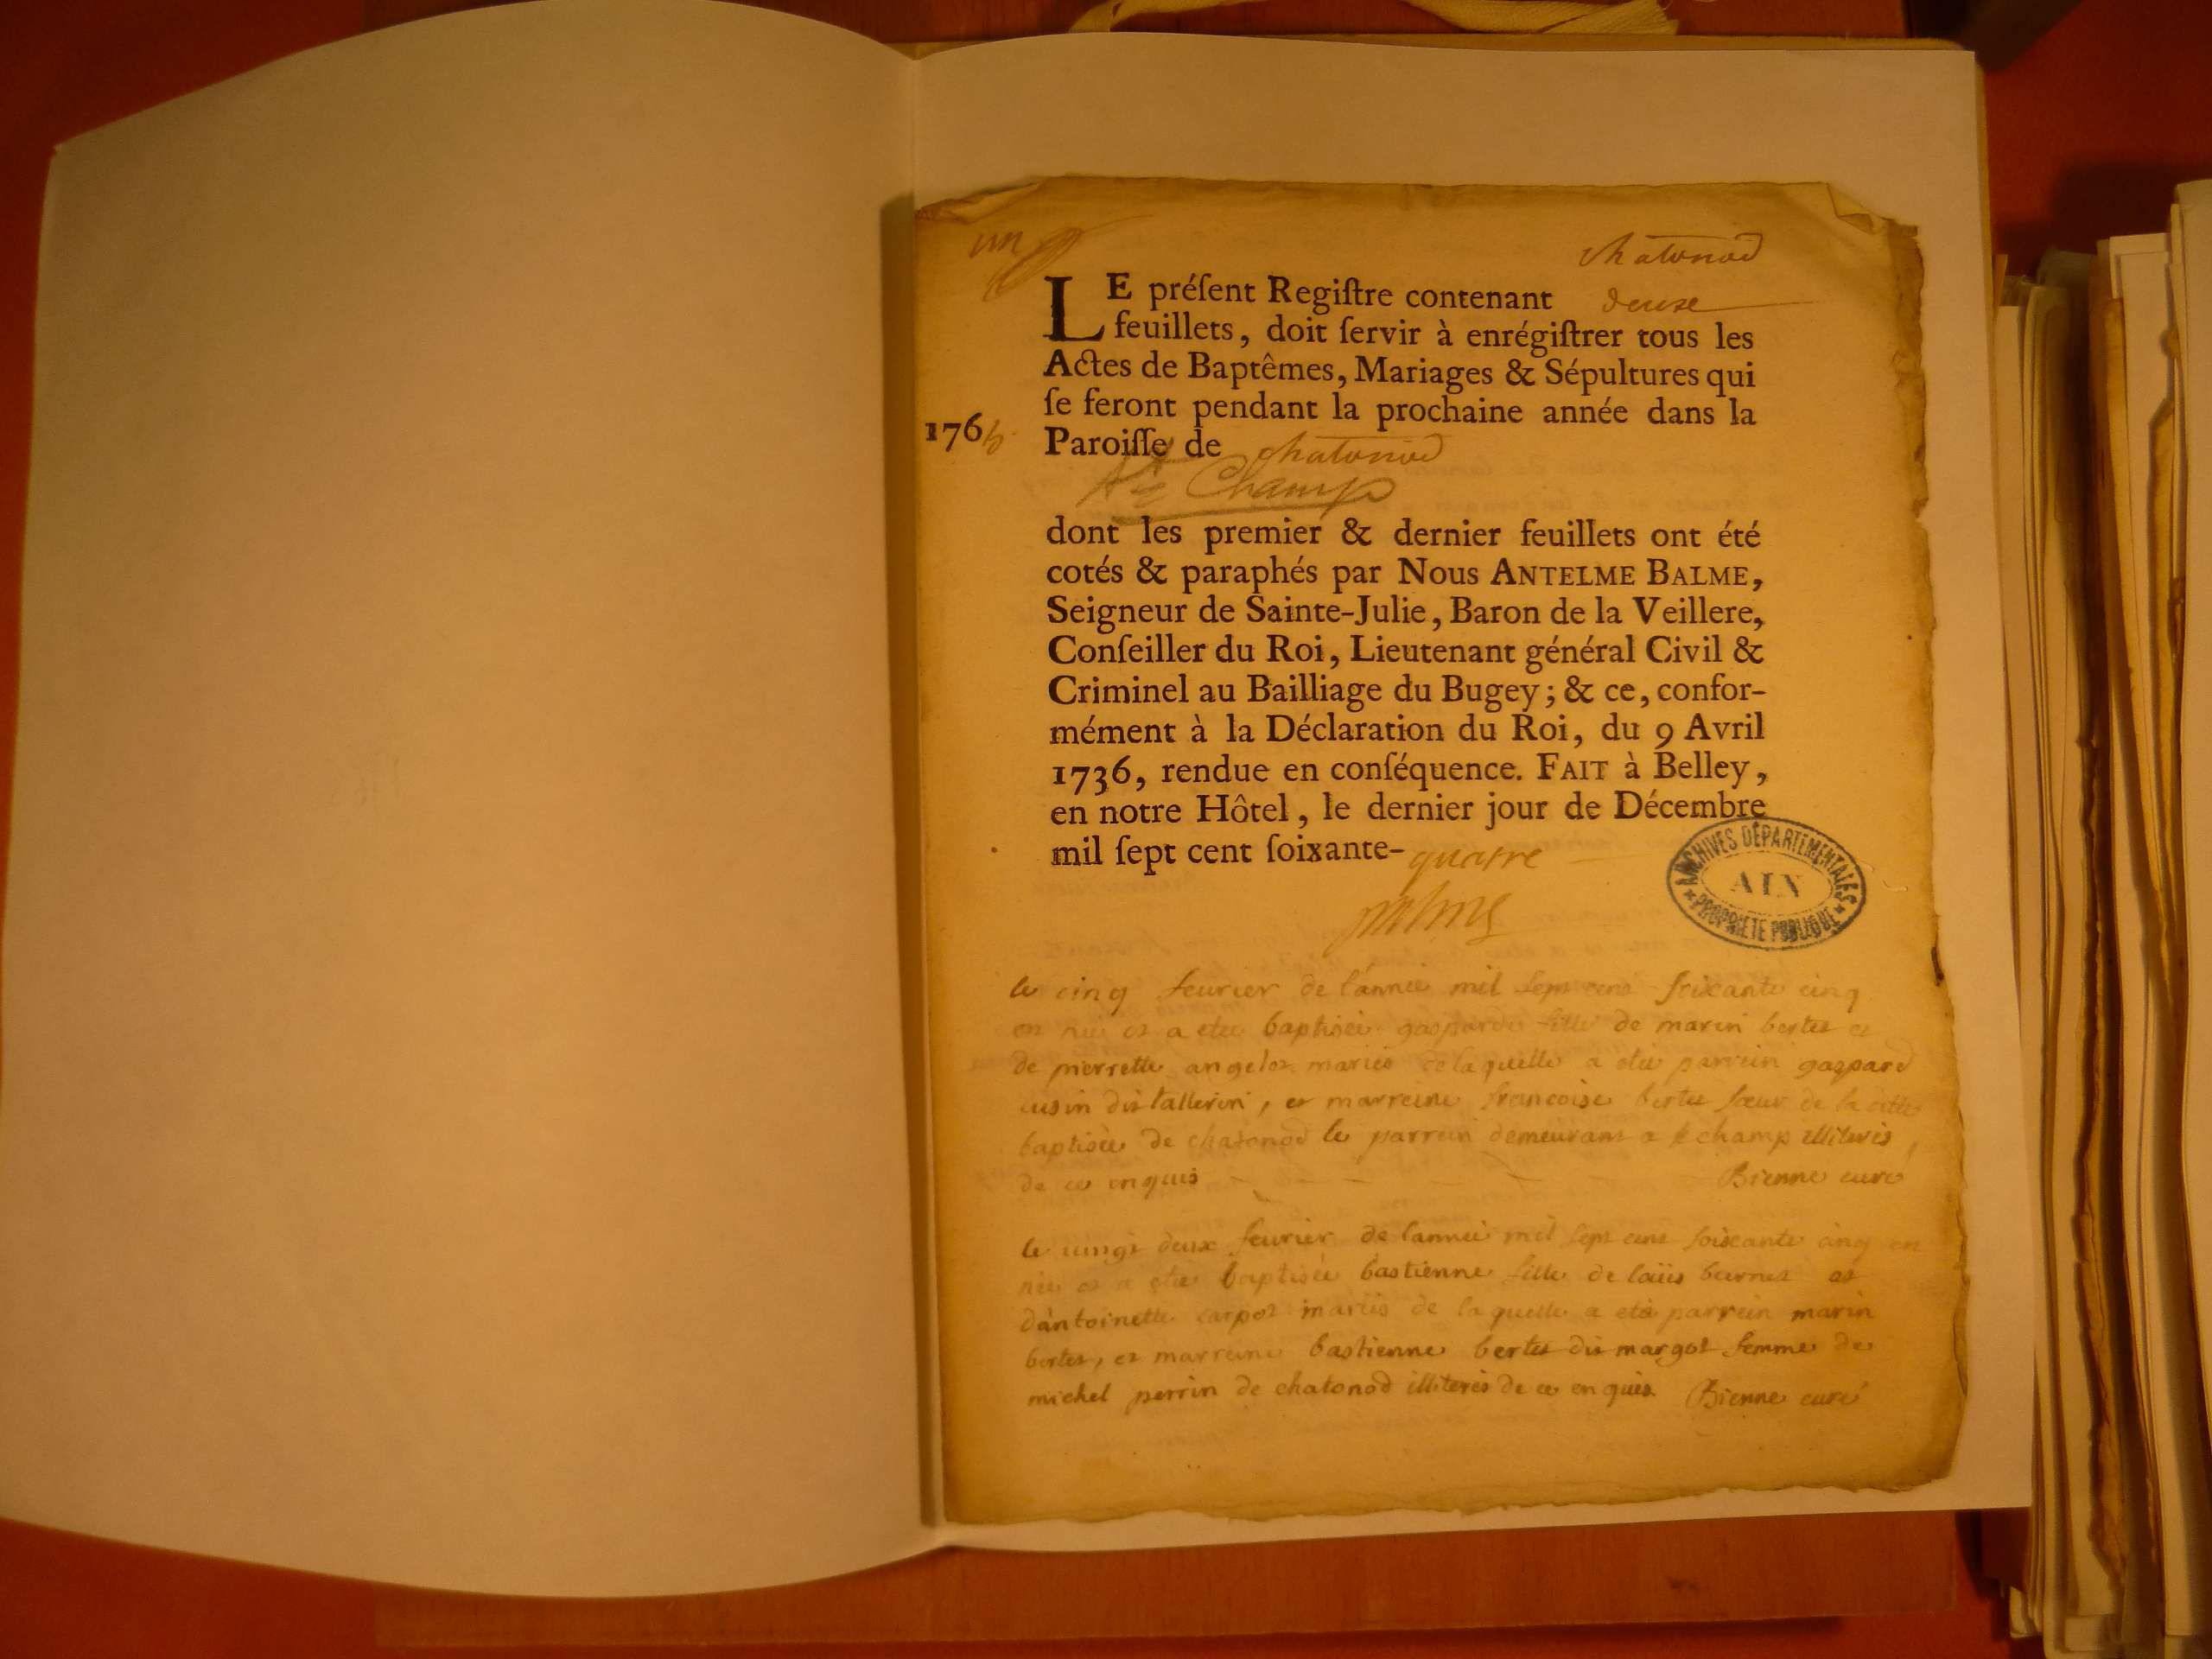 un
chatonod
LE préſent Regiſtre contenant deuxe
feuillets, doit ſervir à enrégiſtrer tous les
Actes de Baptêmes, Mariages & Sépultures qui
ſe feront pendant la prochaine année dans la
1765 Paroiſſe de chatonod
Champ
dont les premier & dernier feuillets ont été
cotés & paraphés par Nous ANTELME BALME,
Seigneur de Sainte-Julie, Baron de la Veillere,
Conſeiller du Roi, Lieutenant général Civil &
Criminel au Bailliage du Bugey; & ce, confor-
mément à la Déclaration du Roi, du 9 Avril
1736, rendue en conſéquence. FAIT à Belley,
en notre Hôtel, le dernier jour de Décembre
mil ſept cent ſoixante-quatre
ARCHIVES DÉPARTEMENTALES
AIN
PROPRIÉTÉ PUBLIQUE
Balme
le cinq feurier de l'année mil sept cens soixante cinq
est née et a etee baptisée gasparde fille de marin bertet et
de pierrette angelot mariés de laquelle a etee parrein gaspard
cusin dit tallerin, et marreine francoise bertet sœur de la ditte
baptisée de chatonod le parrein demeurant a st champ illiterés
de ce enquis Bienne curé
le vingt deux feurier de l'année mil sept cens soixante cinq est
née et a etee baptisée bastienne fille de loüis burnet et
d'antoinette carpot mariés de laquelle a eté parrein marin
bertet, et marreine bastienne bertet dit margot femme de
michel perrin de chatonod illiterés de ce enquis. Bienne curé